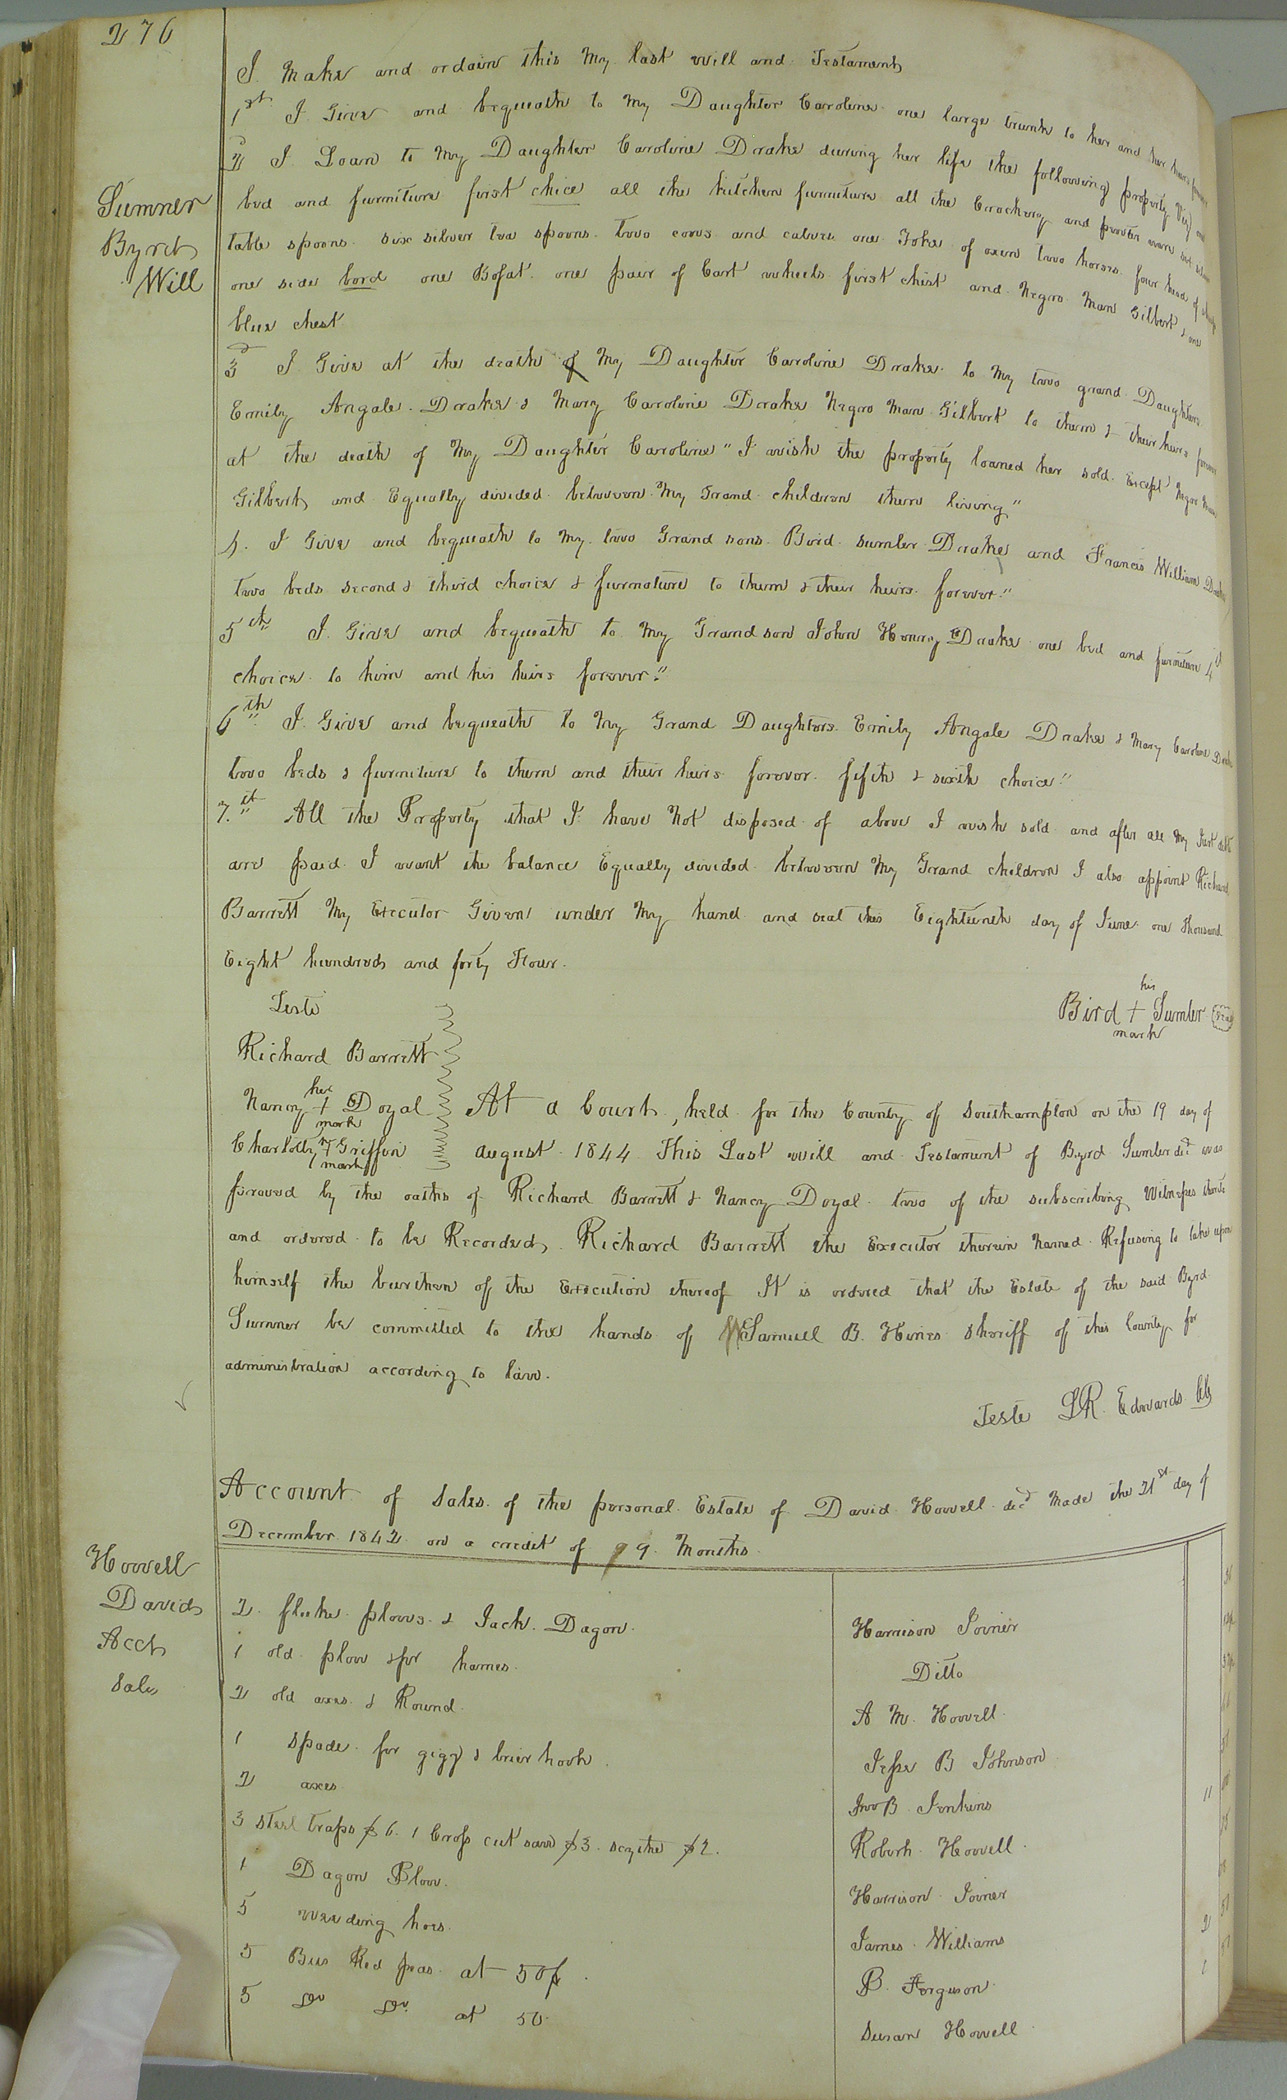 276
I Make and ordain this My last will and Testament
1st I Give and bequeath to My Daughter Caroline one large trunk to her and her heirs forever
2d I Loan to My Daughter Caroline Drake during her life the following property Viz one
bed and furniture first chice all the kitchen furniture all the Crockery and pewter ware six silver
table spoons six silver tea spoons two cows and calves one Yoke of oxen two horses four head of sheep
one side bord one Bofat one pair of Cart wheels first chist and Negro Man Gilbert & one
blue chest
3d I Give at the death of My Daughter Caroline Drake to My two grand Daughters
Emily Angale Drake & Mary Caroline Drake Negro Man Gilbert to them & their heirs forever
at the death of My Daughter Caroline " I wish the property loaned her sold Except Negro Man
Gilbert and Equally divided between My Grand children then living "
4. I Give and bequeath to My two Grand sons Bird Sumler Drake and Francis William Drake
two beds second & third choice & furnature to them & their heirs forever "
5th I Give and bequeath to My Grand son John Henry Drake one bed and furniture 4th
choice to him and his heirs forever "
6th I Give and bequeath to My Grand Daughters Emily Angale Drake & Mary Caroline Drake
two beds & furniture to them and their heirs forever fifth & sixth choice "
7th All the Property that I have Not disposed of above I wish sold and after all My Just debts
are paid I want the balance Equally divided between My Grand children I also appoint Richard
Barrett My Executor Given under My hand and seal this Eighteenth day of June one thousand
Eight hundred and forty Four.
Teste
his
Bird + Sumler Seal
mark
Richard Barrett
Nancy her + mark Doyal
Charlotty + mark Griffin
At a Court, held for the County of Southampton on the 19 day of
august 1844 This Last will and Testament of Byrd Sumler decd was
proved by the oaths of Richard Barrett & Nancy Doyal two of the subscribing Witnesses thereto
and ordered to be Recorded, Richard Barrett the Executor therein Named Refusing to take upon
himself the burthen of the Execution thereof It is ordered that the Estate of the said Byrd
Sumner be committed to the hands of Samuell B. Hines Sheriff of this County for
administration according to law.
Teste L R Edwards Clk
Sumner
Byrd
Will
Account of Sales of the personal Estate of David Howell decd Made the 21st day of
December 1842 on a credit of 9 Months
Howell
David
Acct
Sale
2 fluke plows & Jack Dagon Harrison Joiner
1 old plow & pr hames Ditto
2 old axes & Round A M Howell
1 spade pr gigg & brier hook Jesse B Johnson
2 axes Jno B Jenkins 11
3 steel traps $6. 1 Cross cut saw $3. scythe $2. Robert Howell
1 Dagon Plow Harrison Joiner
5 weeding hoes James Williams 2
5 Bus Red peas at 50¢ B. Ferguson 1
5 Do Do at 50 Susan Howell